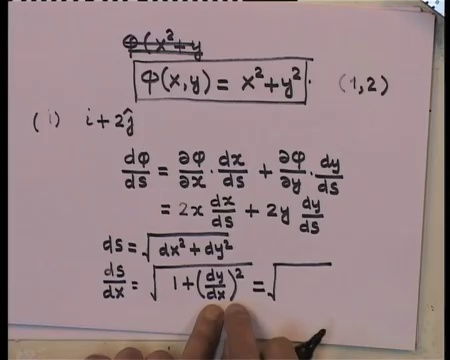 φ(x²+y
φ(x,y) = x²+y². (1,2)
(i) i+2ĵ
dφ/ds = ∂φ/∂x · dx/ds + ∂φ/∂y · dy/ds
= 2x dx/ds + 2y dy/ds
ds = √(dx²+dy²)
ds/dx = √(1+(dy/dx)²) = √